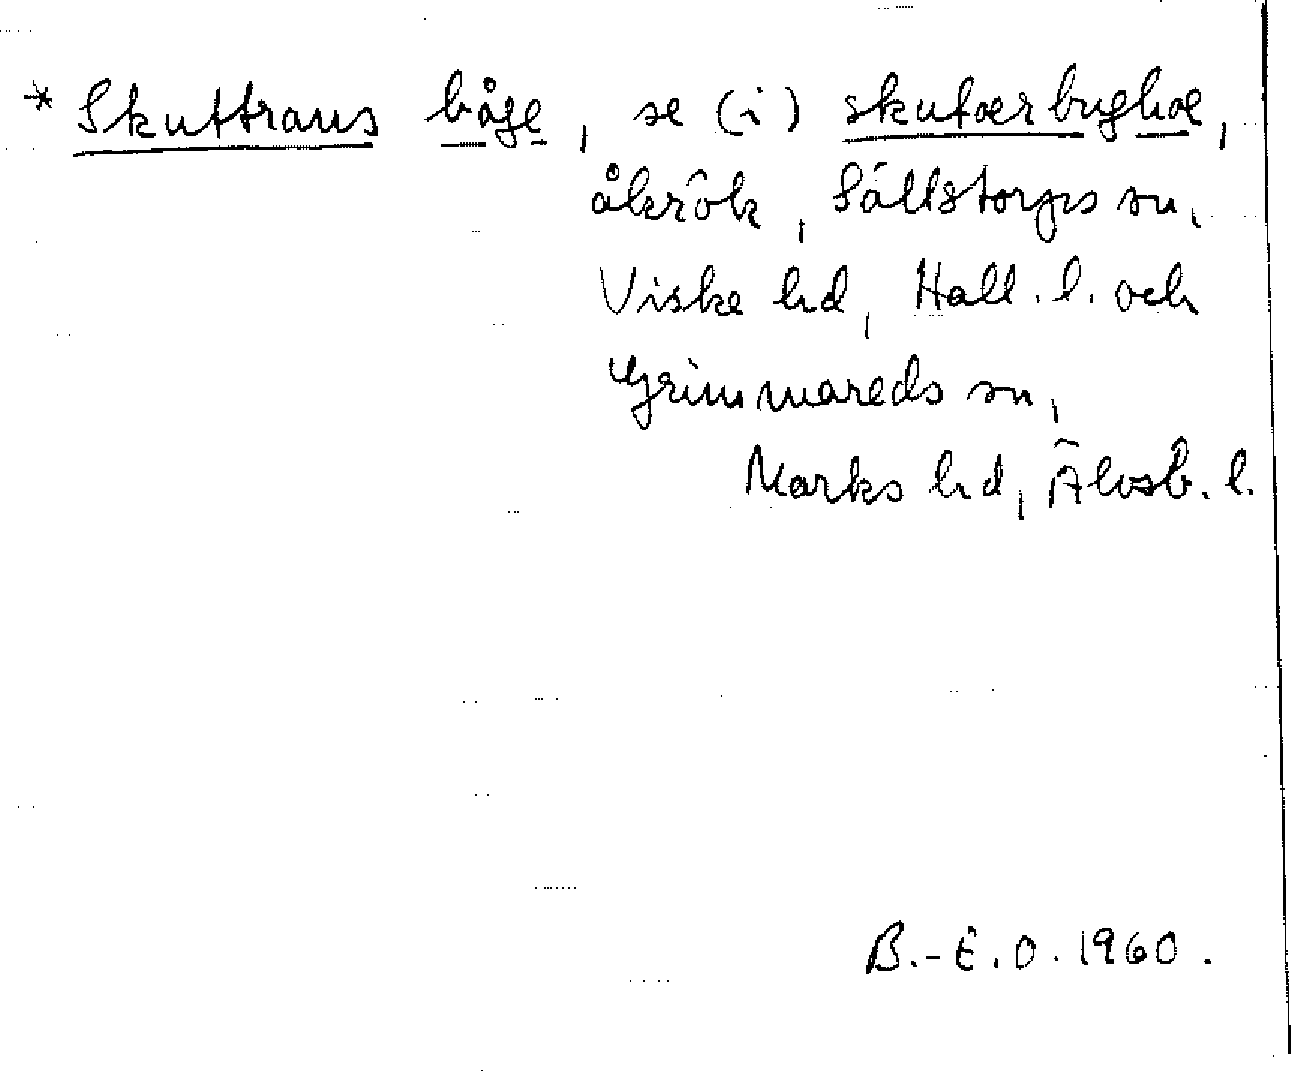 * Skuttrans båge, se (i) skutær bughæ,
åkrök, Sällstorps sn,
Viske hd, Hall. l. och
Grimmareds sn,
Marks hd, Älvsb. l.
B.-E. O. 1960.